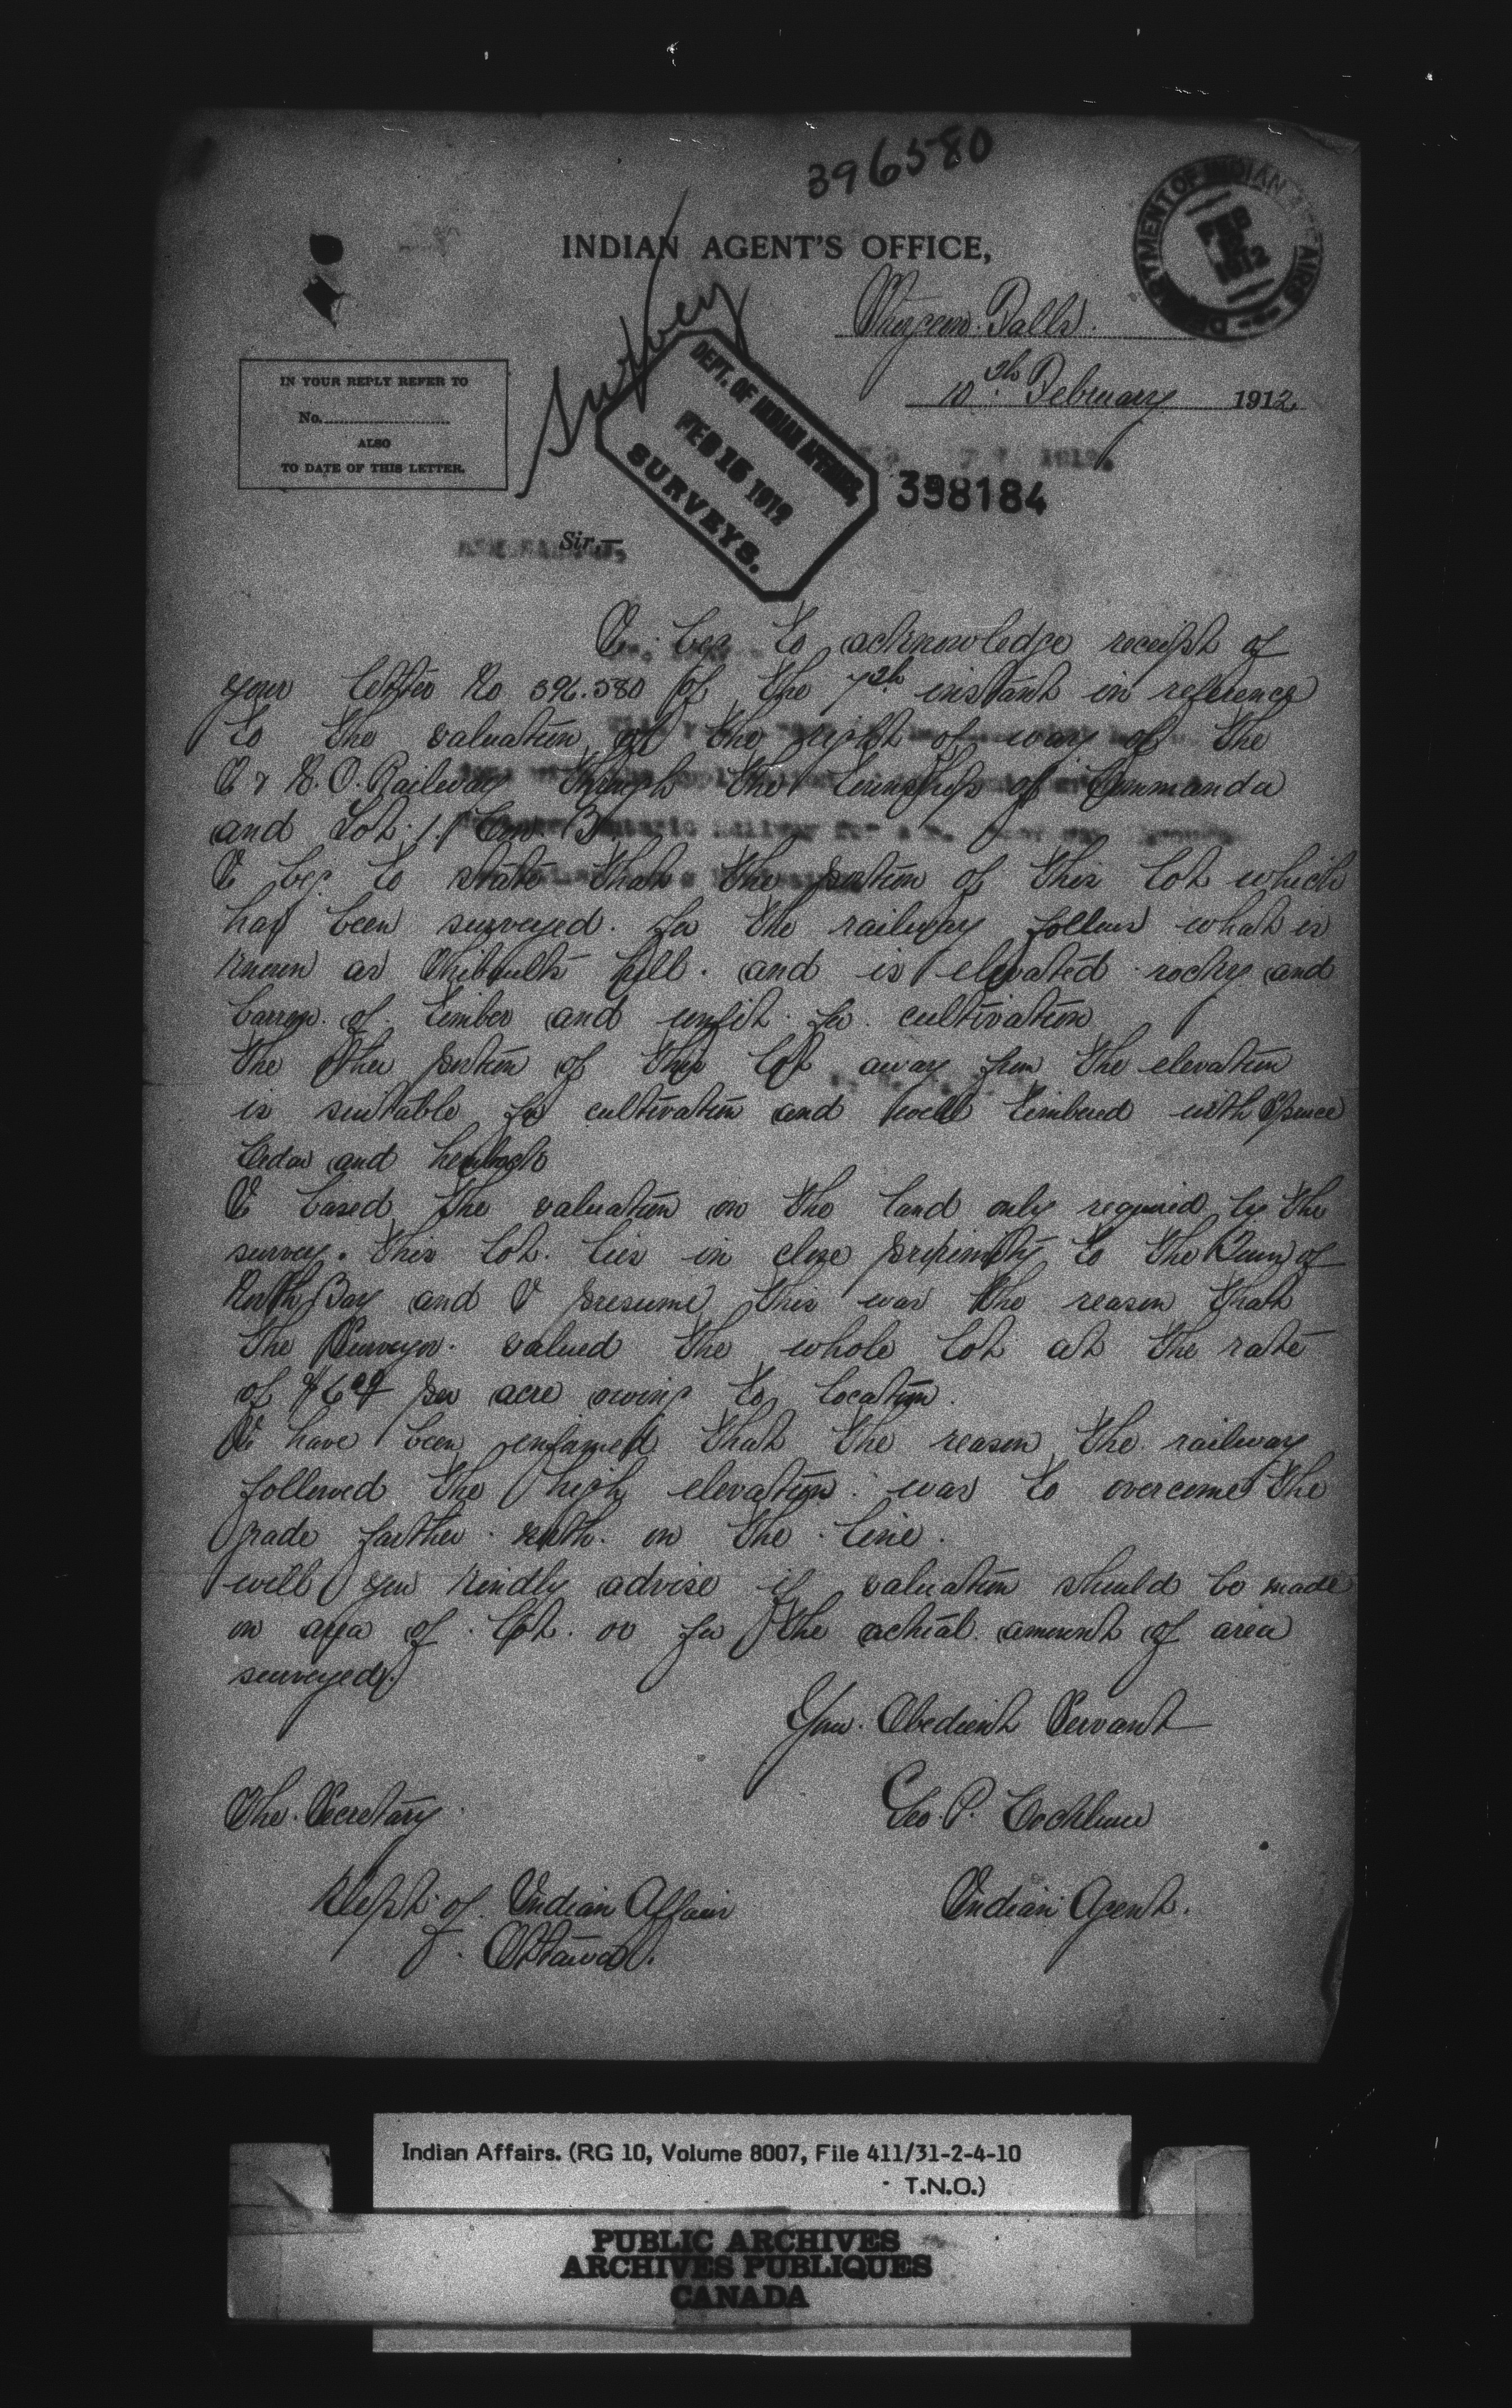 396580
INDIAN AGENT'S OFFICE,
DEPARTMENT OF INDIAN AFFAIRS
FEB
1912
Sturgeon Falls.
10th February 1912
Survey
IN YOUR REPLY REFER TO
No.
ALSO
TO DATE OF THIS LETTER.
DEPT. OF INDIAN AFFAIRS,
FEB 15 1912
SURVEYS.
398184
Sir,—
I beg to acknowledge receipt of
your letter No 396.580 of the 7th instant in reference
to the valuation of the right of way of the
T & N.O. Railway through the Township of Commanda
and Lot. 1. Con. B
I beg to state that the portion of this lot which
has been surveyed. for the railway follows what is
known as Thibeults hill. and is elevated rocky and
barren. of. timber and unfit. for. cultivation
The other portion of this lot away from the elevation
is suitable for cultivation and well timbered with Spruce
Cedar and hemlock
I based the valuation on the land only required by the
survey. this lot. lies in close proximity to the Town of
North Bay and I presume this was the reason that
the Surveyor. valued the whole lot at the rate
of $6.00 per acre owing to location.
I have been informed that the reason the railway
followed the high elevation. was to overcome the
grade farther north. on the line.
will you kindly advise if valuation should be made
on area of. lot. or for the actual amount of area
surveyed.
Your. Obedient Servant
The. Secretary
Geo. P. Cockburn
Dept. of. Indian Affairs
Indian Agent.
Ottawa.
Indian Affairs. (RG 10, Volume 8007, File 411/31-2-4-10
T.N.O.)
PUBLIC ARCHIVES
ARCHIVES PUBLIQUES
CANADA